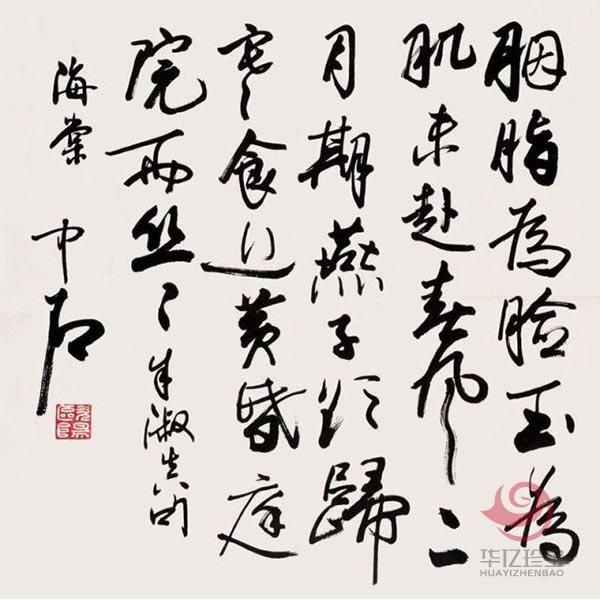 胭脂為臉玉為
肌未赴春風二
月期燕子欲歸
寒食近黄昏庭
院雨丝〻朱淑真句
海棠 中石
华亿珍宝
HUAYIZHENBAO